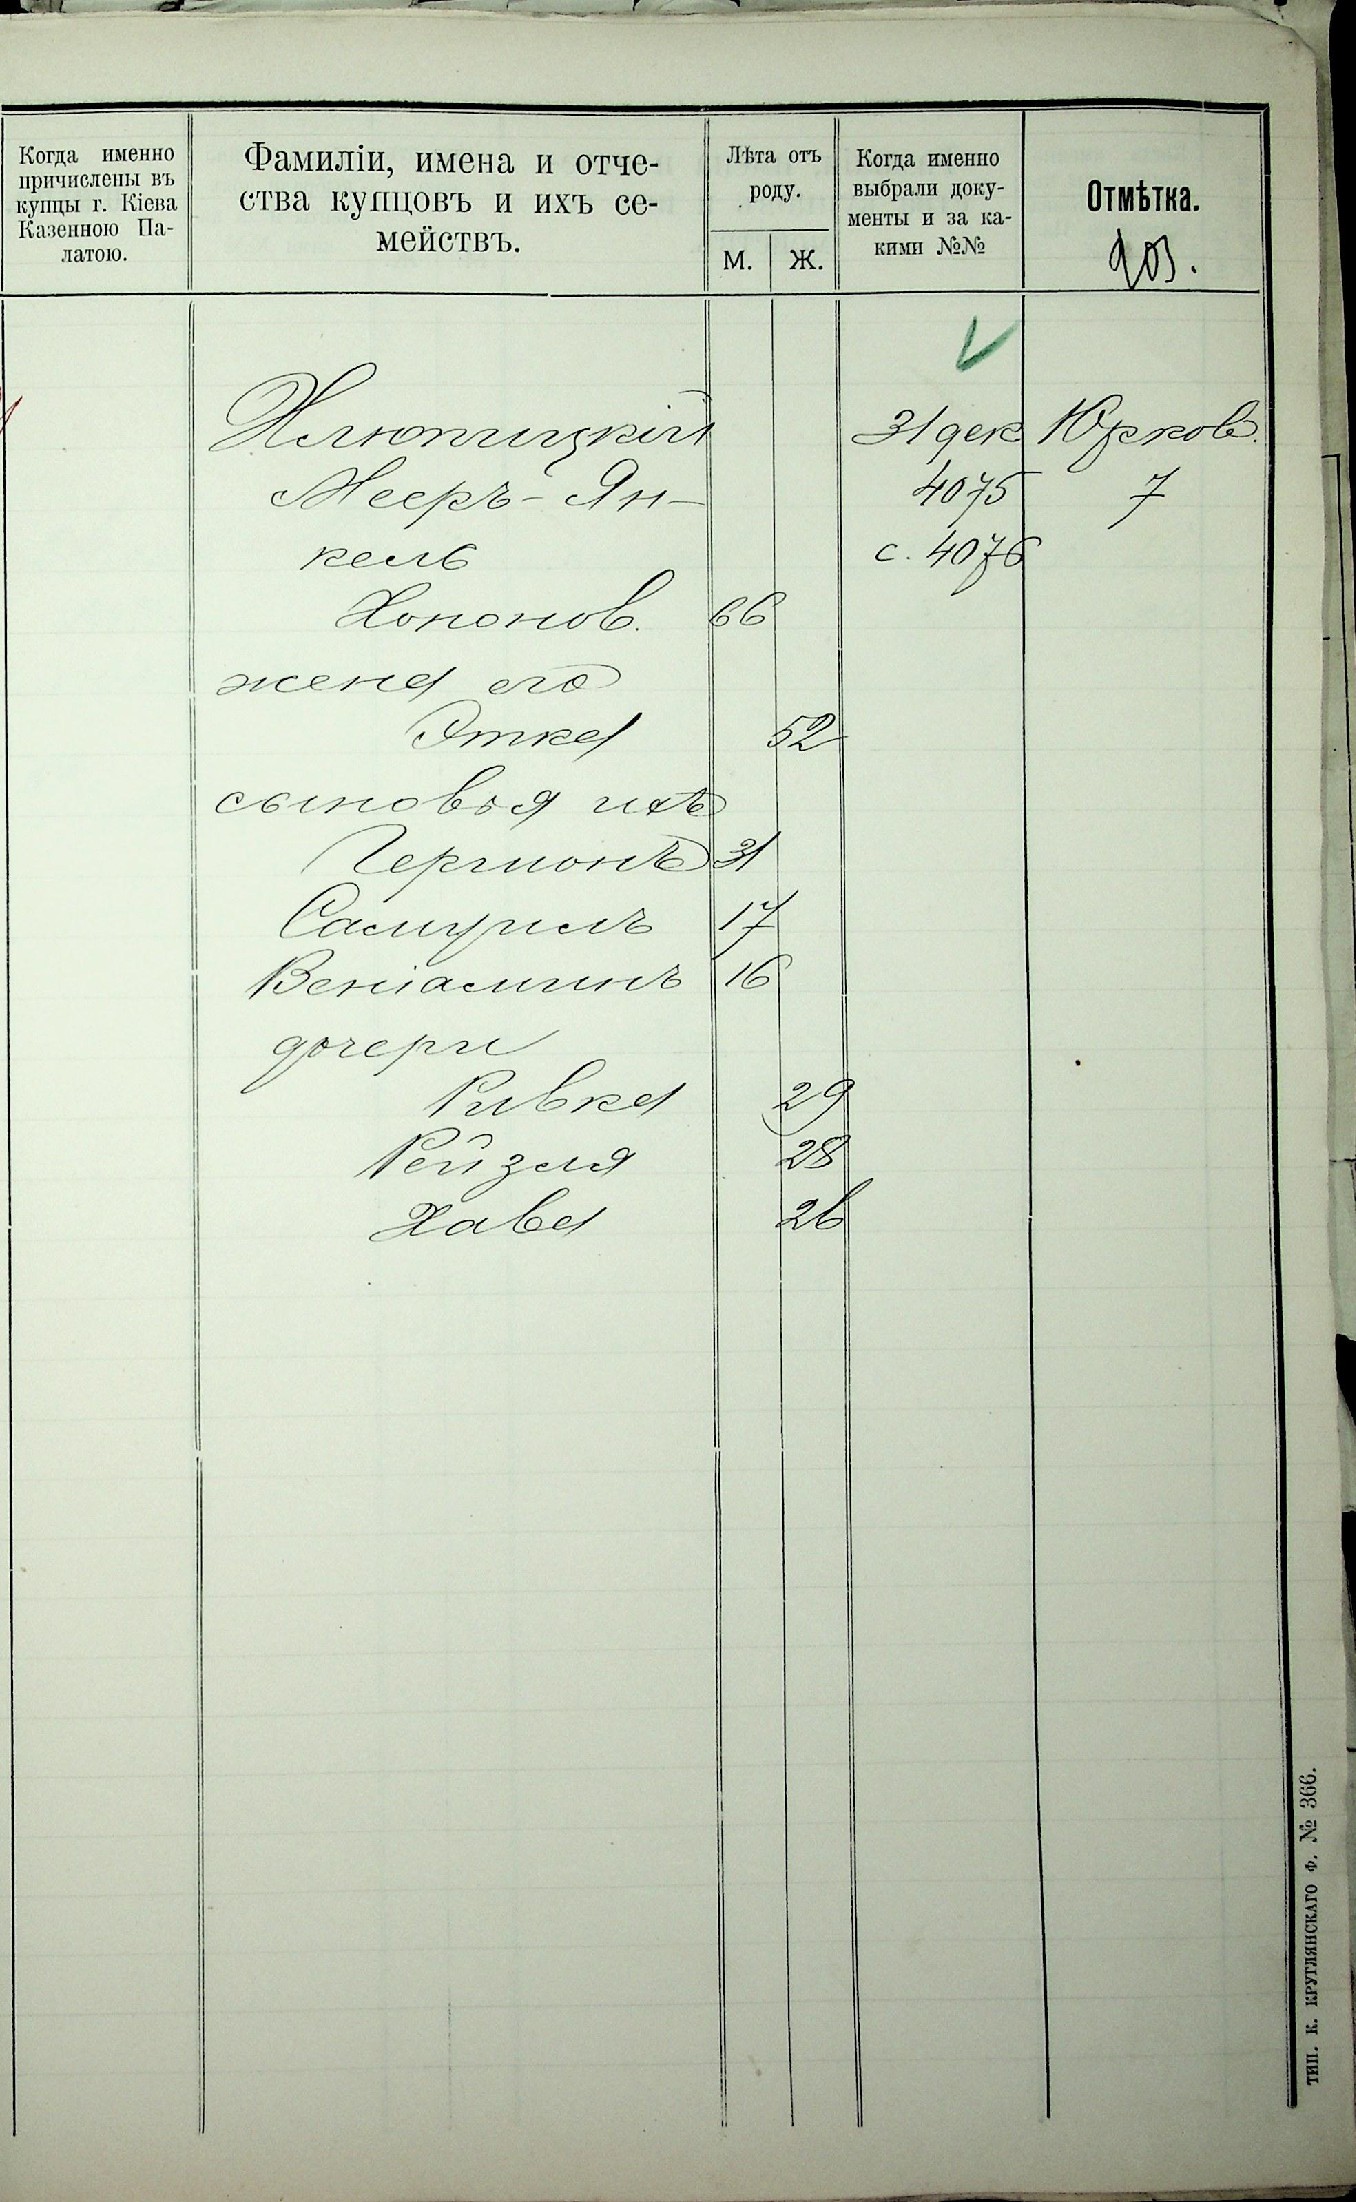 Когда именно
причислены въ
купцы г. Кіева
Казенною Па-
латою.
Фамиліи, имена и отче-
ства купцовъ и ихъ се-
мействъ.
Лѣта отъ
роду.
М. Ж.
Когда именно
выбрали доку-
менты и за ка-
кими №№
Отмѣтка.
203.
31 дек Юрков.
Мееръ-Ян- 4075 7
кель с. 4076
Хононов. 66
жена его
Этка 52
сыновья ихъ
Германъ 31
Самуилъ 17
Веніаминъ 16
дочери
Ривка 29
Рейзля 28
Хава 26
ТИП. К. КРУГЛЯНСКАГО Ф. № 366.